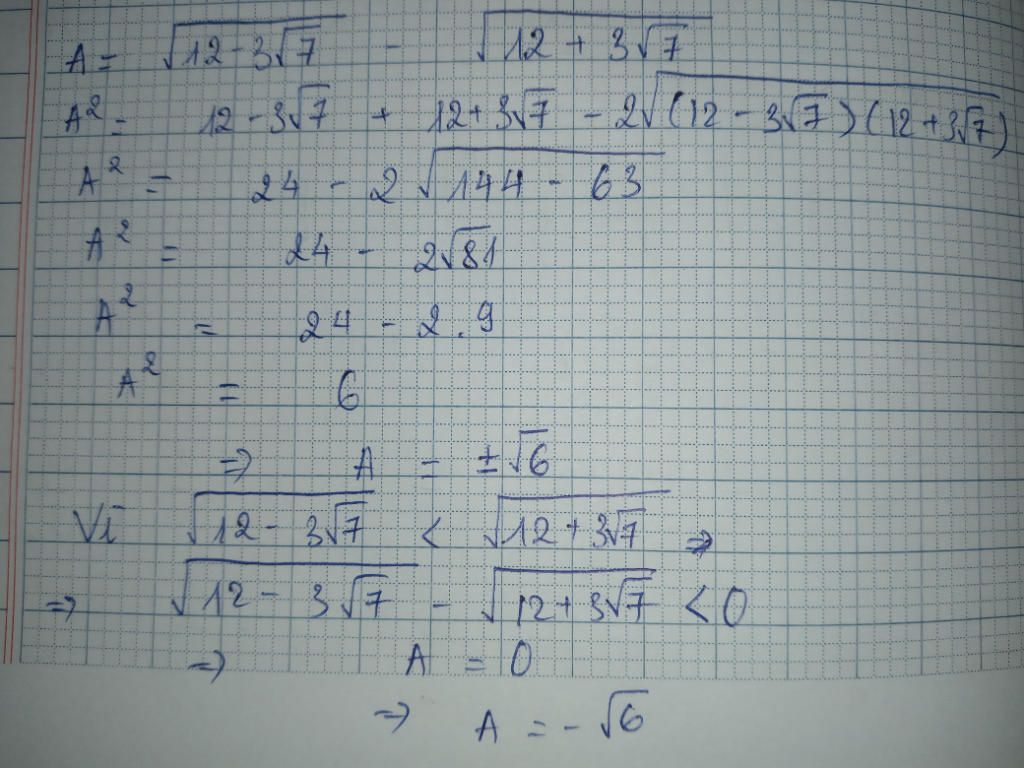 A = √(12 - 3√7) - √(12 + 3√7)
A² = 12 - 3√7 + 12 + 3√7 - 2√((12 - 3√7)(12 + 3√7))
A² = 24 - 2√(144 - 63)
A² = 24 - 2√81
A² = 24 - 2.9
A² = 6
=> A = ±√6
Vì √(12 - 3√7) < √(12 + 3√7) =>
=> √(12 - 3√7) - √(12 + 3√7) < 0
=> A = 0
=> A = -√6